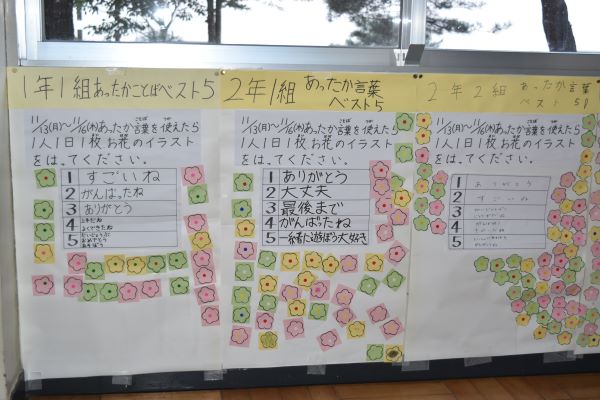 1年1組 あったかことばベスト5
11/13(月)～11/16(木)あったか言葉を使えたら
ことば
1人1日1枚お花のイラスト
をはってください。
1 すごいね
2 がんばったね
3 ありがとう
4 上手だね
よくできたね
5 だいじょうぶ
おめでとう
2年1組 あったか言葉
ベスト5
11/13(月)～11/16(木)あったか言葉を使えたら
ことば
1人1日1枚お花のイラスト
をはってください。
1 ありがとう
2 大丈夫
3 最後まで
4 がんばったね
5 一緒に遊ぼう大好き
2年2組 あったか言葉
ベスト5
11/13(月)～11/16(木)あったか言葉を使えたら
ことば
1人1日1枚お花のイラスト
をはってください。
1 ありがとう
2 すごいね
3
4
5